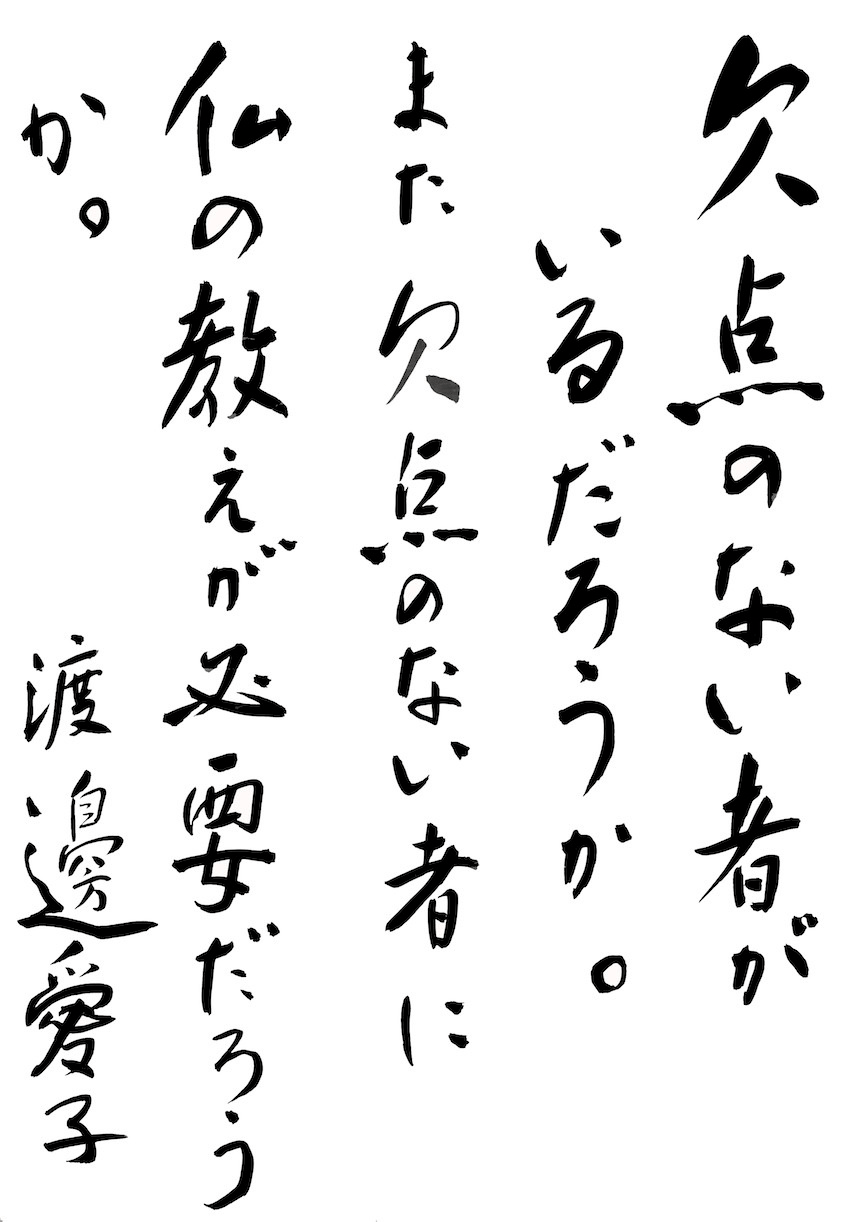 欠点のない者が
いるだろうか。
また欠点のない者に
仏の教えが必要だろう
か。
渡邊愛子